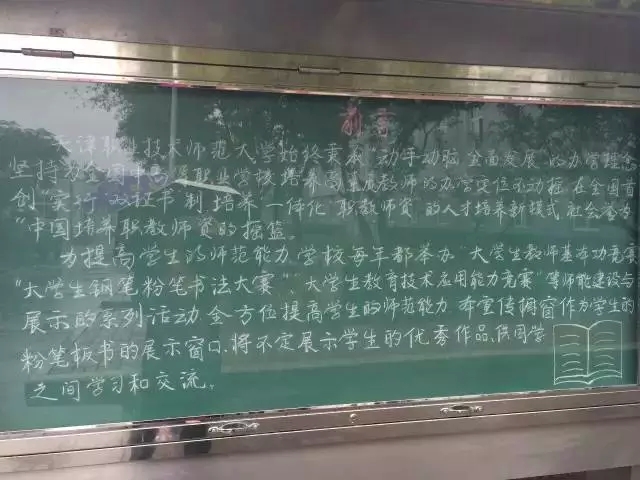 前言
天津职业技术师范大学始终秉承"动手动脑 全面发展"的办学理念
坚持为全国中高等职业学校培养高素质教师的办学定位不动摇.在全国首
创"实行'双证书'制 培养'一体化'职教师资"的人才培养新模式.社会誉为
"中国培养职教师资的摇篮。
为提高学生的师范能力.学校每年都举办"大学生教师基本功竞赛
"大学生钢笔粉笔书法大赛"、"大学生教育技术应用能力竞赛"等师能建设与
展示的系列活动.全方位提高学生的师范能力.本宣传橱窗作为学生的
粉笔板书的展示窗口.将不定展示学生的优秀作品.供同学
之间学习和交流。